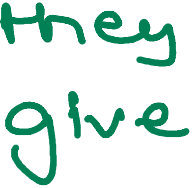 they
give